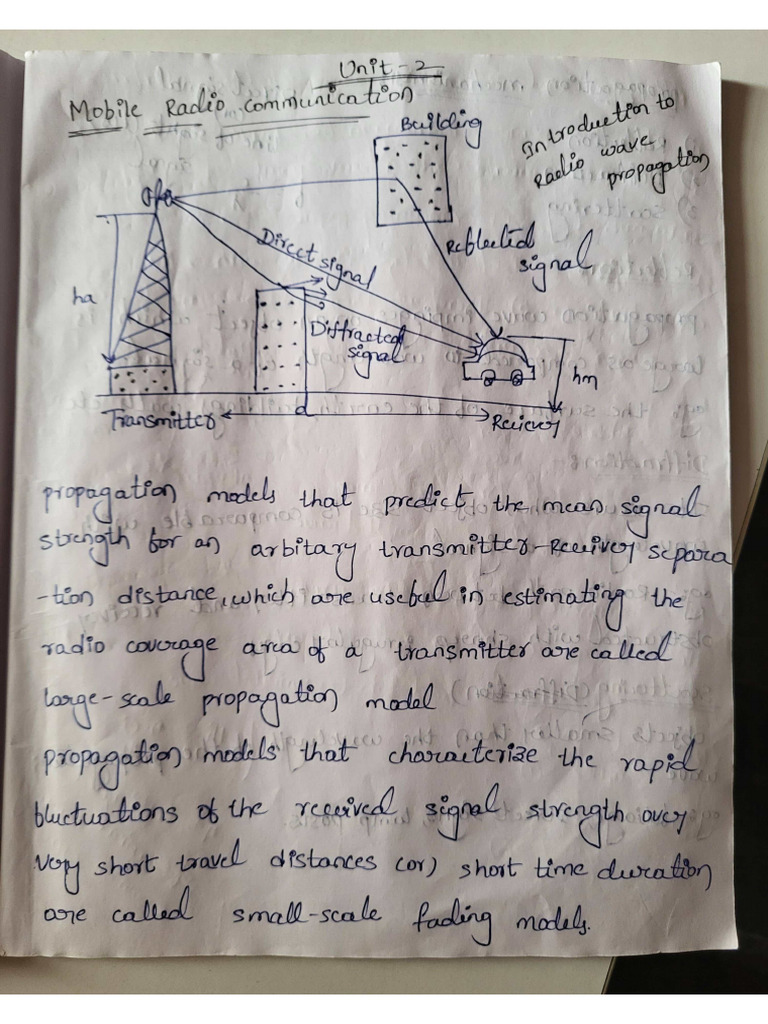 Unit - 2
Mobile Radio Communication
Introduction to
Radio wave
propagation
Building
Direct signal
Reflected
signal
ha
Diffracted
signal
hm
Transmitter
d
Reciever
propagation models that predict the mean signal
strength for an arbitary transmitter-Receiver separa
-tion distance, which are useful in estimating the
radio coverage area of a transmitter are called
large-scale propagation model
propagation models that characterize the rapid
fluctuations of the received signal strength over
very short travel distances (or) short time duration
are called small-scale fading models.